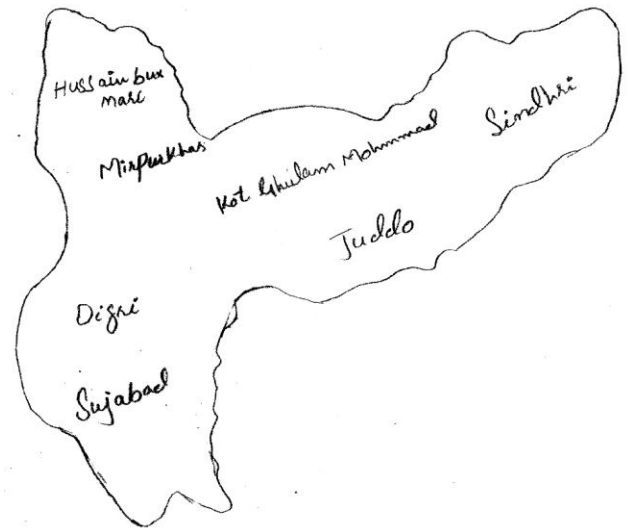 Hussain bux
mari
Mirpurkhas
Kot Ghulam Mohmmad
Sindhri
Juddo
Digri
Sujabad